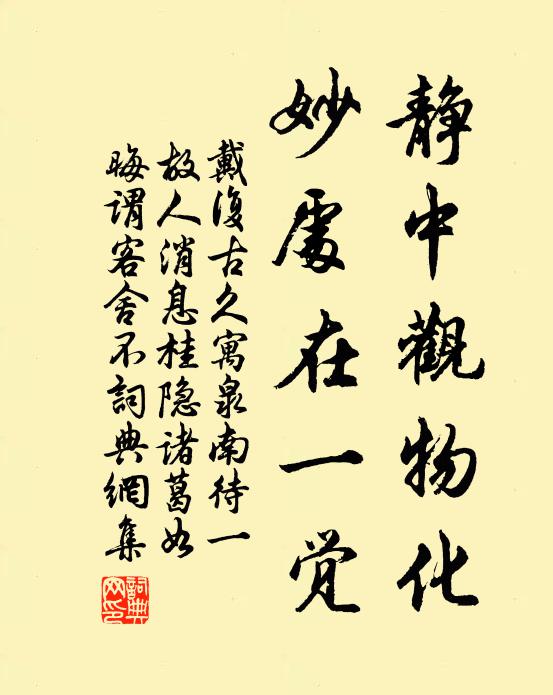 静中觀物化
妙處在一觉
戴復古久寓泉南待一
故人消息桂隐諸葛如
晦謂客舍不詞典網集
詞典網印